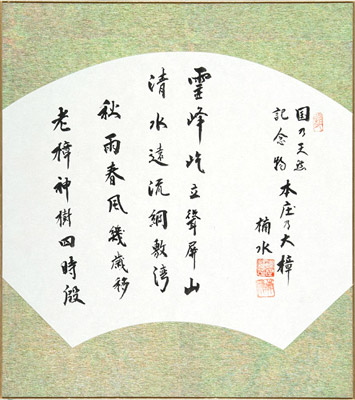 国乃天然
記念物 本庄乃大樟
楠水
霊峰屹立聳屏山
清水遠流綱敷湾
秋雨春風幾歳移
老樟神樹四時殷